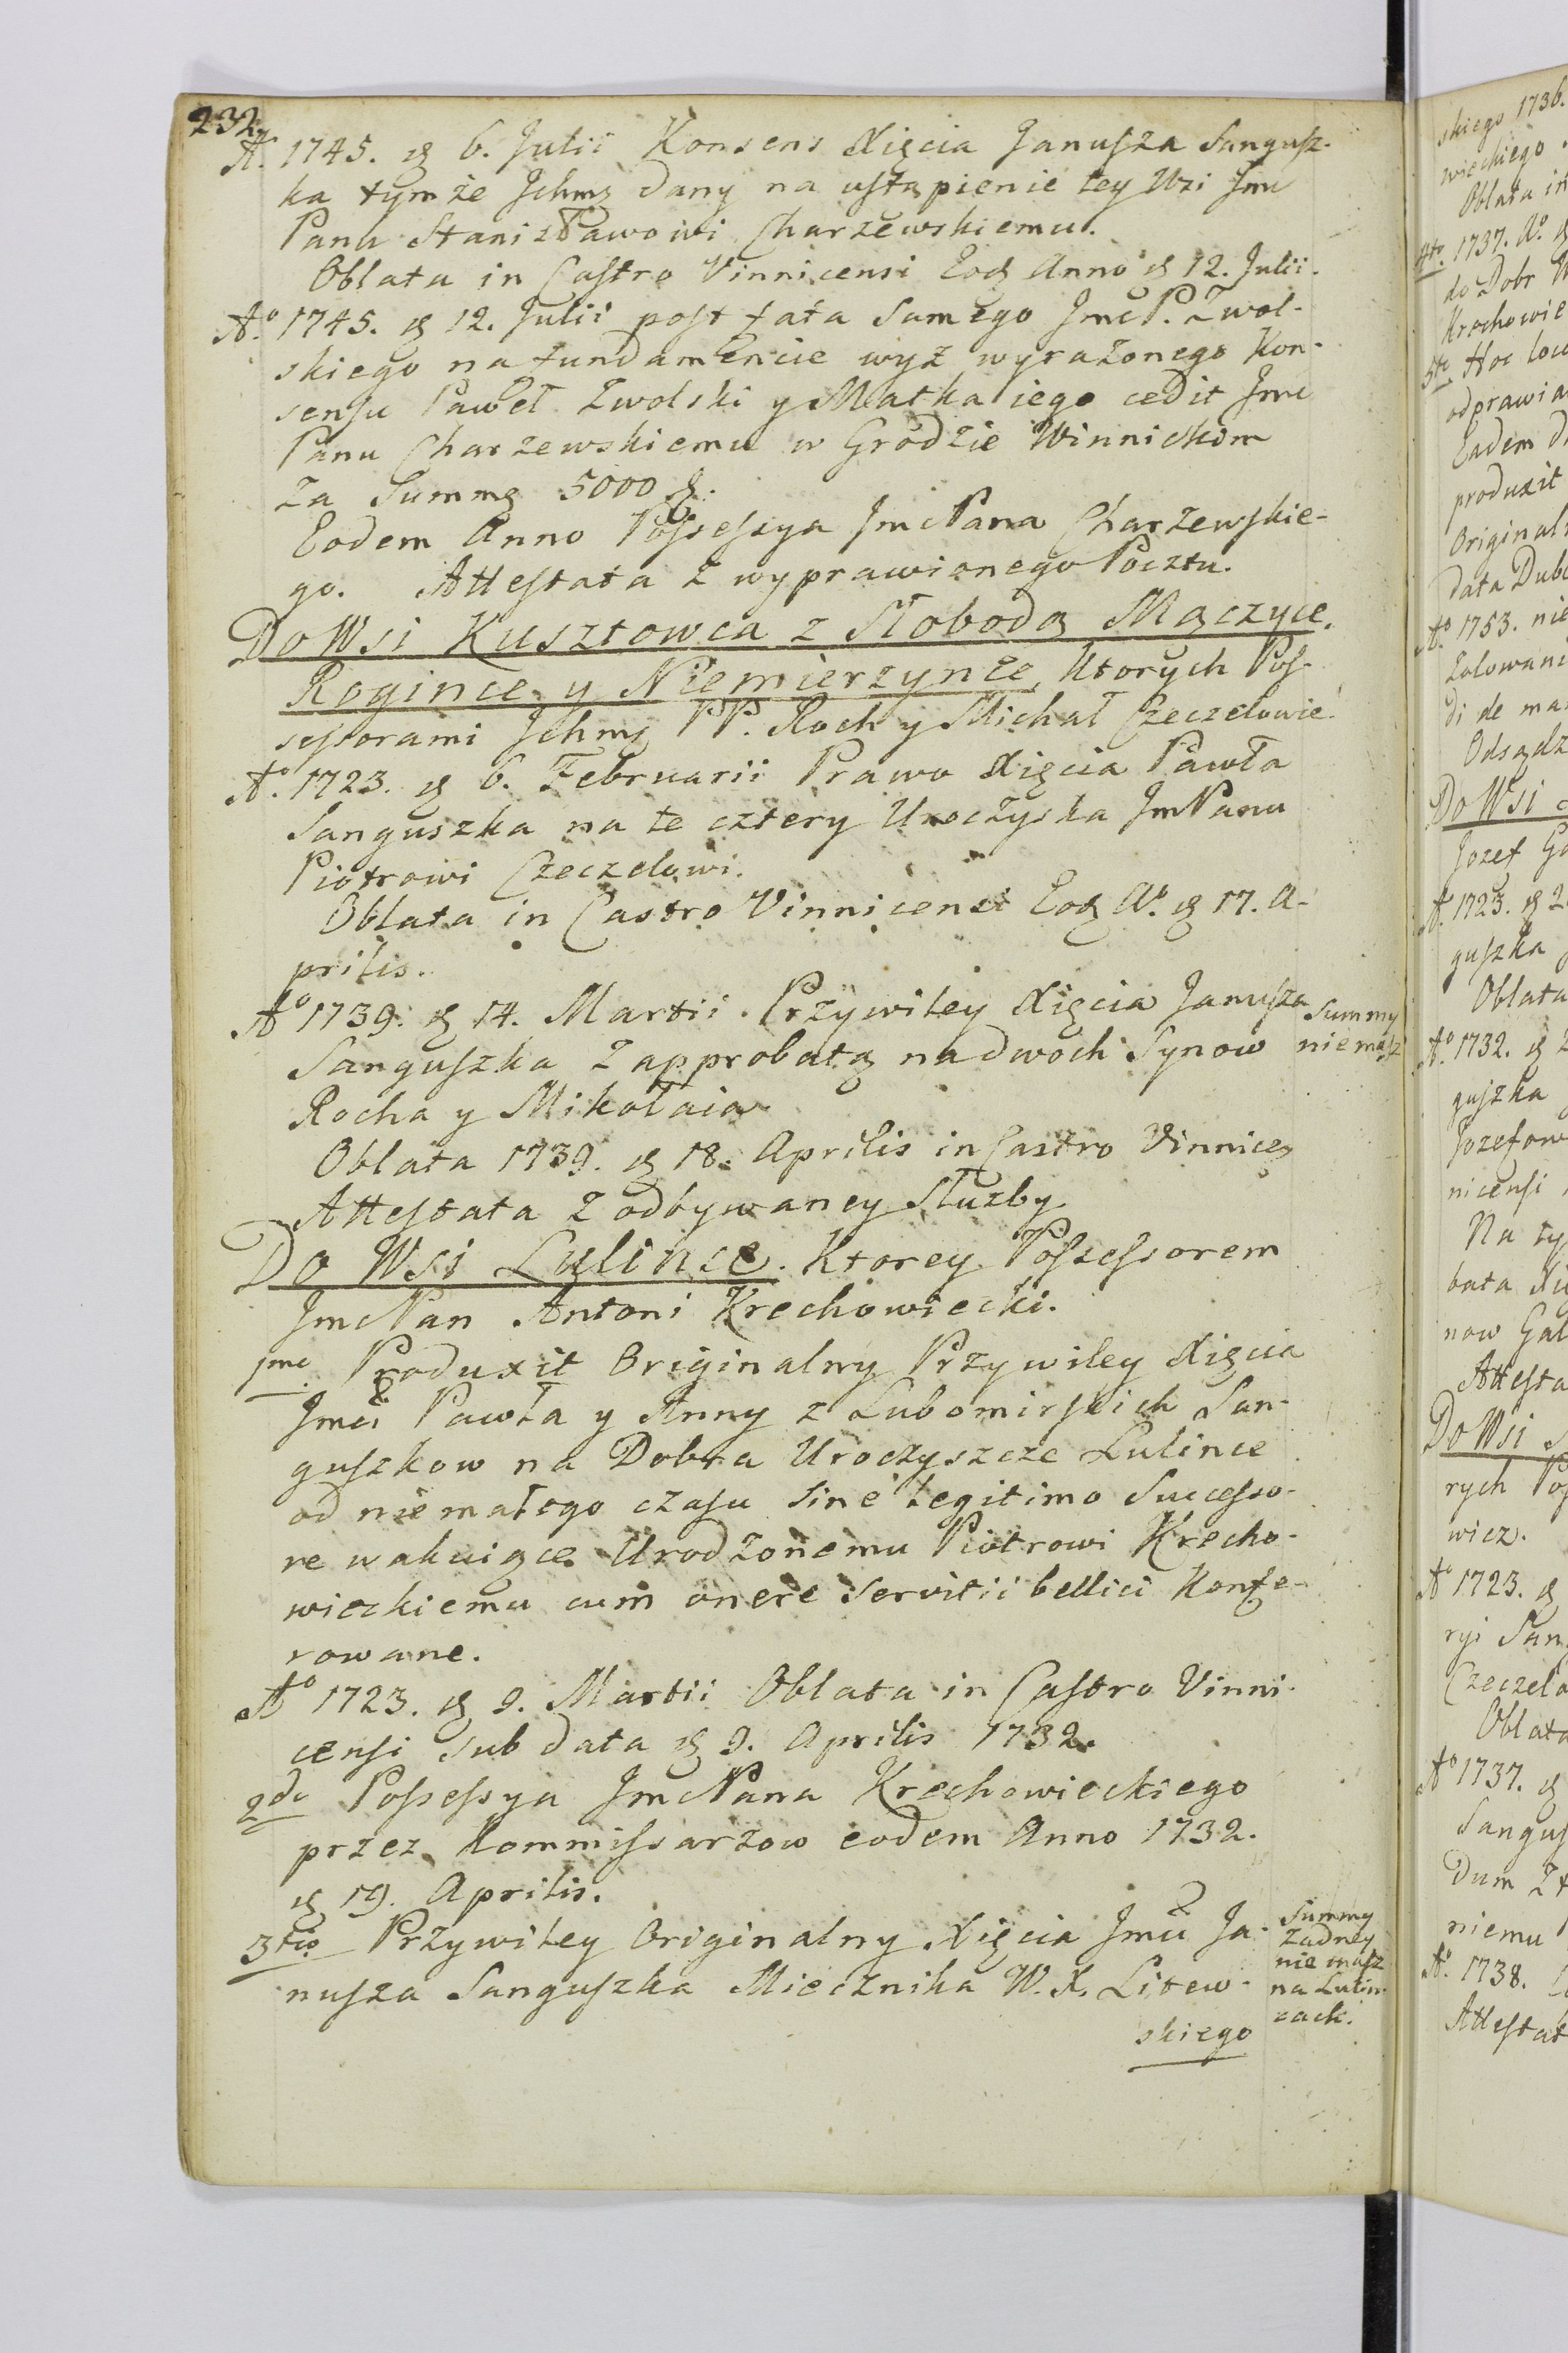 232.
A. 1745. d 6. Julii Konsens Xięcia Janusza Sangusz-
ka tymże Jchmę dany na ustąpienie tey Wsi Jmc
Panu Stanisławowi Charzewskiemu.
Oblata in Castro Vinnicensi Eod Anno d 12. Julii.
Aº. 1745. d 12. Julii post fata Samego Jmc P. Zwol-
skiego na fundamencie wyż wyrażonego Kon-
sensu Paweł Zwolski y Matka iego cedit Jmc
Panu Charzewskiemu w Grodzie Winnickim
za Summę 5000 zł.
Eodem Anno Possessya Jmc Pana Charzewskie-
go. Attestata z wyprawionego Pocztu.
Do Wsi Kusztowca z Słobodą Mączyce.
Rogince y Niemierzynce, Ktorych Pos-
sessorami Jchmę PP. Roch y Michał Czeczelowie.
Aº. 1723. d 6. Februarii Prawo Xięcia Pawła
Sanguszka na te cztery Uroczyska Jm Panu
Piotrowi Czeczelowi.
Oblata in Castro Vinnicensi Eod Aº. d 17. A-
prilis.
Aº 1739. d 14. Martii. Przywiley Xięcia Janusza
Sanguszka z approbatą na dwoch Synow
Rocha y Mikołaia
Summy
nie masz
Oblata 1739. d 18. Aprilis in Castro Vinnicen
Attestata z odbywaney Służby
Do Wsi Lulince. Ktorey Possessorem
Jmc Pan Antoni Krechowiecki.
1mo. Produxit Originalny Przywiley Xięcia
Jmci Pawła y Anny z Lubomirskich San-
guszkow na Dobra Uroczyszcze Lulince
od niemałego czasu sine legitimo Successo-
re wakuiące Urodzonemu Piotrowi Krecho-
wieckiemu cum onere servitii bellici Konfe-
rowane.
Aº 1723. d 9. Martii Oblata in Castro Vinni-
censi sub data d 9. Aprilis 1732.
2do Possessya Jmc Pana Krechowieckiego
przez Kommissarzow eodem Anno 1732.
d 19. Aprilis.
3tio Przywiley Originalny Xięcia Jmci Ja-
nusza Sanguszka Miecznika W. X. Litew-
skiego
Summy
żadney
nie masz
na Lulin-
cach.
skiego 1736.
wieckiego
Oblata in
4to. 1737. Aº. d
do Dobr
Krechowie
5to Hoc loco
odprawia
Eadem
produxit
Original
data Dub
Aº 1753. nie
di de
Odsądz
Do Wsi
Jozef
A. 1723. d
guszka
Oblata
Aº. 1732. d
guszka
Jozefow
nicensi
Na ty
bata Xi
now Gal
Attesta
Do Wsi
rych Pos
wicz.
Aº 1723. d
ryi Sang
Czeczelo
Oblata
Aº 1737. d
Sangus
dum
niemu
Aº. 1738.
Attestat